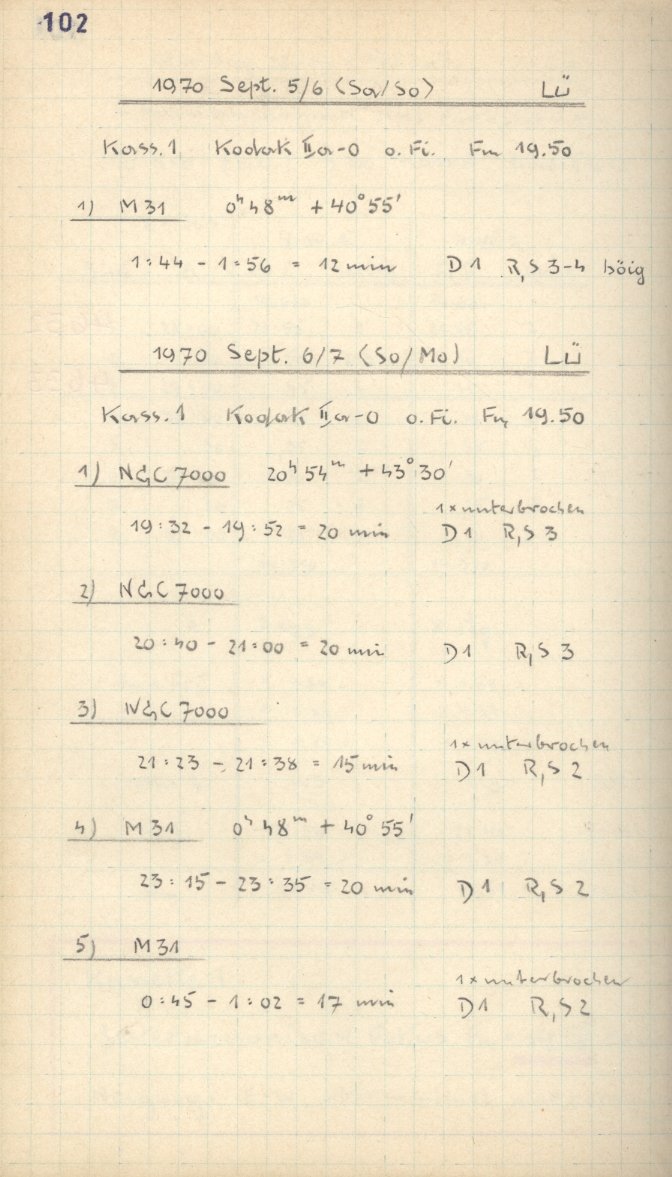 102
1970 Sept. 5/6 (Sa/So) LÜ
Kass.1 Kodak IIa-O o. Fi. Fm 19.50
1) M 31 0ʰ 48ᵐ + 40° 55'
1:44 - 1:56 = 12 min D 1 R,S 3-4 böig
1970 Sept. 6/7 (So/Mo) LÜ
Kass.1 Kodak IIa-O o. Fi. Fm 19.50
1) NGC 7000 20ʰ 54ᵐ + 43° 30'
1 x unterbrochen
19:32 - 19:52 = 20 min D 1 R,S 3
2) NGC 7000
20:40 - 21:00 = 20 min D 1 R,S 3
3) NGC 7000
1 x unterbrochen
21:23 - 21:38 = 15 min D 1 R,S 2
4) M 31 0ʰ 48ᵐ + 40° 55'
23:15 - 23:35 = 20 min D 1 R,S 2
5) M 31
1 x unterbrochen
0:45 - 1:02 = 17 min D 1 R,S 2